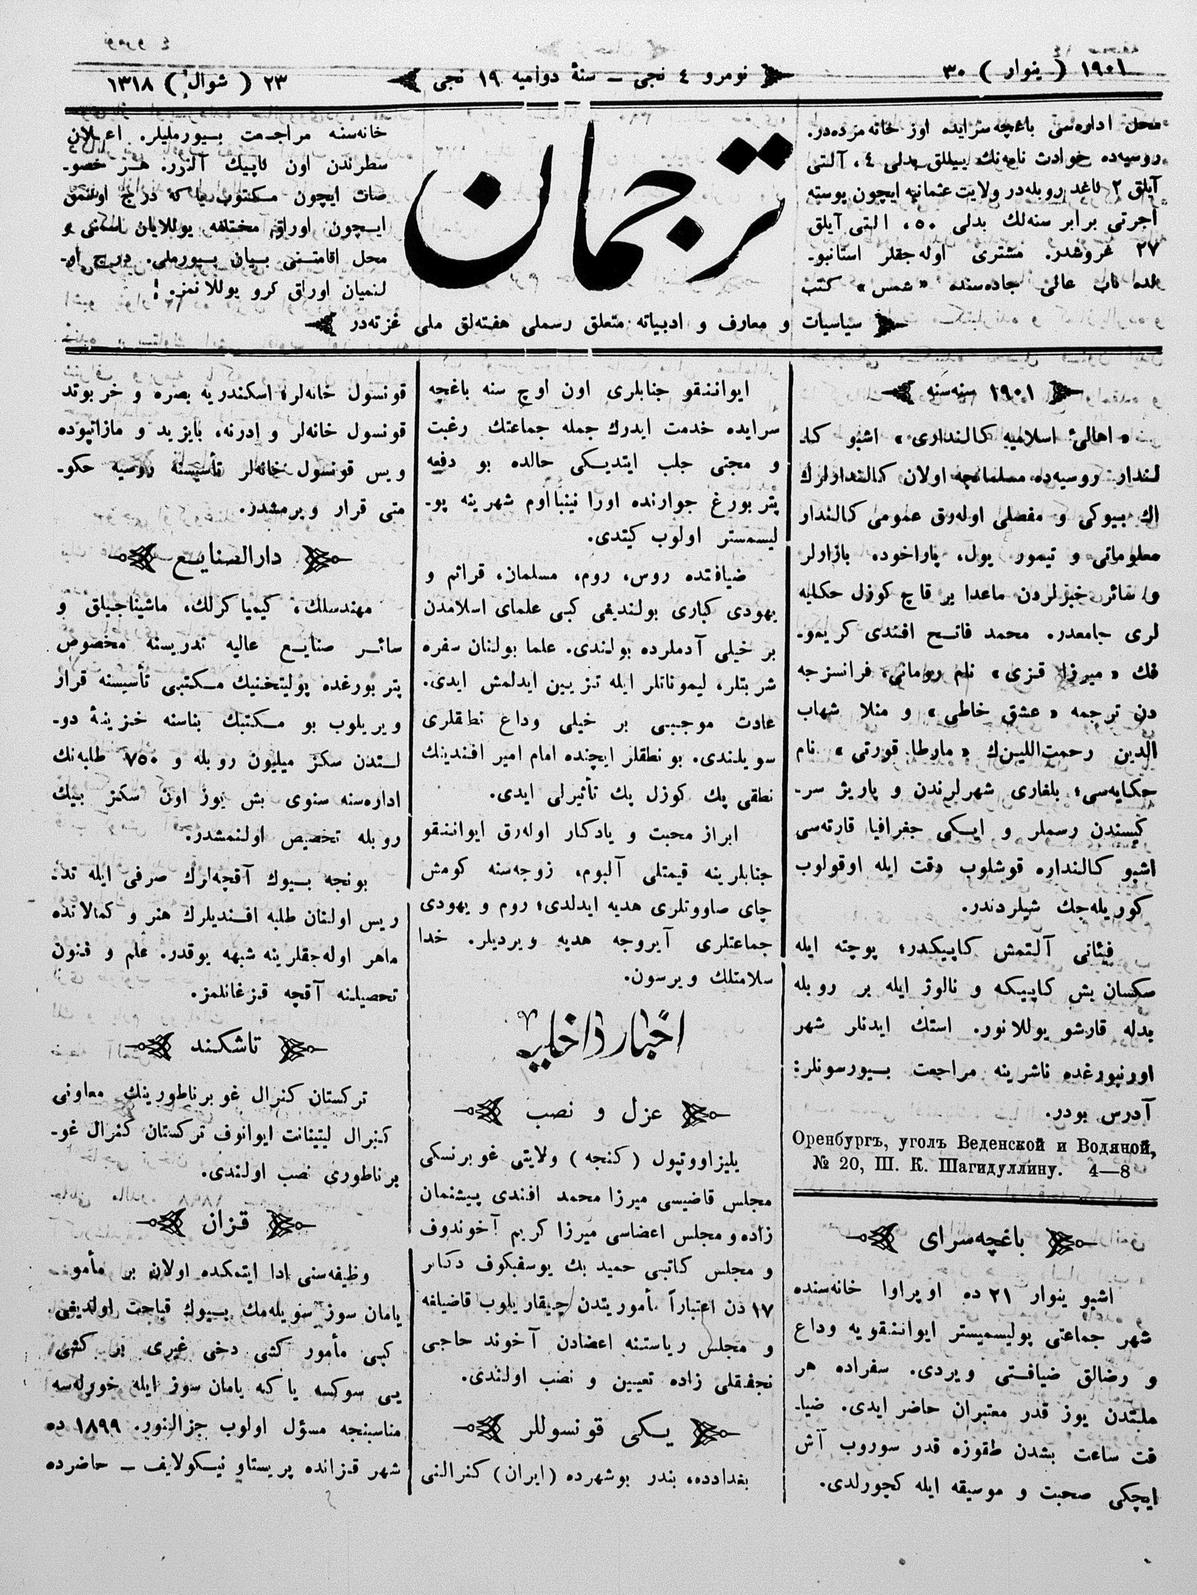 ١٩٠١ ( ينوار ) ٣٠
نومرو ٤ نجى ــ سنۀ دواميه ١٩ نجى
٢٣ ( شوال ) ١٣١٨
محل اداره‌سى باغچه‌سرايده اوز خانه‌مزده‌در.
روسيه‌ده حوادث نامه‌نك ييللق بدلى ٤، آلتى
آيلق ٢ كاغد روبله‌در ولايت عثمانيه ايچون پوسته
اجرتى برابر سنه‌لك بدلى ٥٠، التى آيلق
٢٧ غروشدر. مشترى اوله‌جقلر استانبو-
لده باب عالى جاده‌سنده «شمس» كتب
ترجمان
خانه‌سنه مراجعت بيورمليلر. اعلان
سطرندن اون كاپيك آلنور. هر خصو-
صات ايچون مكتوب يا كه درج اولنمق
ايچون اوراق مختلفه يوللايان اسمنى و
محل اقامتنى بيان بيورملى. درج او-
لنميان اوراق كرو يوللانمز. !
سياسيات و معارف و ادبياته متعلق رسملى هفته‌لق ملى غزته‌در
١٩٠١ سنه‌سنه
«اهالئ اسلاميه كالندارى» اشبو كا-
لندار روسيه‌ده مسلمانچه اولان كالندارلرك
اك بيوكى و مفصلى اوله‌رق عمومى كالندار
معلوماتى و تيمور يول، پاراخوده بازارلر
و سائر خبزلردن ماعدا بر قاچ كوزل حكايه
لرى جامعدر. محمد فاتح افندى كريمو-
فك «ميرزا قزى» نام رومانى، فرانسزجه
دن ترجمه «عشق خاطى» و منلا شهاب
الدين رحمت‌اللين‌ك «مارطا قورتى» نام
حكايه‌سى؛ بلغارى شهرلرندن و پاريژ سر-
كيسندن رسملر و ايكى جغرافيا قارته‌سى
اشبو كالنداره قوشلوب دقت ايله اوقولوب
كوريله‌جك شيلردندر.
فيئاتى آلتمش كاپيكدر؛ پوچته ايله
سكسان بش كاپيكه و نالوژ ايله بر روبله
بدله قارشو يوللانور. استك ايدنلر شهر
اورنبورغده ناشرينه مراجعت بيورسونلر:
آدرس بودر.
Оренбургъ, уголъ Веденской и Водяной,
№ 20, Ш. К. Шагидуллину. 4—8
باغچه‌سراى
اشبو ينوار ٢١ ده اوپراوا خانه‌سنده
شهر جماعتى پوليسميستر ايواننقو يه وداع
و رضالق ضيافتى ويردى. سفراده هر
ملتدن يوز قدر معتبران حاضر ايدى. ضيا-
فت ساعت بشدن طقوزه قدر سوروب آش
ايچكى صحبت و موسيقه ايله كچورلدى.
ايواننقو جنابلرى اون اوچ سنه باغچه
سرايده خدمت ايدرك جمله جماعتك رغبت
و محبتى جلب ايتديكى حالده بو دفعه
پتربورغ جوارنده اورانينبااوم شهرينه پو-
ليسمستر اولوب كيتدى.
ضيافتده روس، روم، مسلمان، قرائم و
يهودى كبارى بولنديغى كبى علماى اسلامدن
بر خيلى آدملرده بولندى. علما بولنان سفره
شربتلر، ليموناتلر ايله تزيين ايدلمش ايدى.
عادت موجبى بر خيلى وداع نطقلرى
سويلندى. بو نطقلر ايچنده امام امير افندينك
نطقى پك كوزل پك تأثيرلى ايدى.
ابراز محبت و يادكار اوله‌رق ايواننقو
جنابلرينه قيمتلى آلبوم، زوجه‌سنه كومش
چاى صاووتلرى هديه ايدلدى؛ روم و يهودى
جماعتلرى آيروجه هديه ويرديلر. خدا
سلامتلك ويرسون.
اخبار داخليه
عزل و نصب
يليزاووتپول ( كنجه ) ولايتى غوبرنسكى
مجلس قاضيسى ميرزا محمد افندى پيشنمان
زاده و مجلس اعضاسى ميرزا كريم آخوندوف
و مجلس كاتبى حميد بك يوسفبكوف دكابر
١٧ دن اعتباراً مأموريتدن چيقاريلوب قاضيلغه
و مجلس رياستنه اعضادن آخوند حاجى
نجفقلى زاده تعيين و نصب اولندى.
يكى قونسوللر
بغدادده، بندر بوشهرده (ايران) كنرالنى
قونسول خانه‌لر؛ اسكندريه بصره و خربوتد
قونسول خانه‌لر و ادرنه، بايزيد و مازانپوده
ويس قونسول خانه‌لر تأسيسنه روسيه حكو-
متى قرار ويرمشدر.
دارالصنايع
مهندسلك، كيمياكرلك، ماشيناجيلق و
سائر صنايع عاليه تدريسنه مخصوص
پتربورغده پوليتخنيك مكتبى تأسيسنه قرار
ويريلوب بو مكتبك بناسنه خزينۀ دو-
لتدن سكز ميليون روبله و ٧٥٠ طلبه‌نك
اداره‌سنه سنوى بش يوز اون سكز بيك
روبله تخصيص اولنمشدر.
بونجه بيوك آقچه‌لرك صرفى ايله تد-
ريس اولنان طلبه افنديلرك هنر و كمالاتده
ماهر اوله‌جقلرينه شبهه يوقدر. علم و فنون
تحصيلنه آقچه قزغانلمز.
تاشكند
تركستان كنرال غوبرناطورينك معاونى
كنرال ليتينانت ايوانوف تركستان كنرال غو-
برناطورى نصب اولندى.
قزان
وظيفه‌سنى ادا ايتمكده اولان بر مأمو
يامان سوز سويله‌مك بيوك قباحت اولديغى
كبى مأمور كشى دخى غيرى بر كشى
يى سوكسه ياكه يامان سوز ايله خورله‌سه
مناسبنجه مسؤل اولوب جزالنور. ١٨٩٩ ده
شهر قزانده پريستاو نيكولايف ــ حاضرده